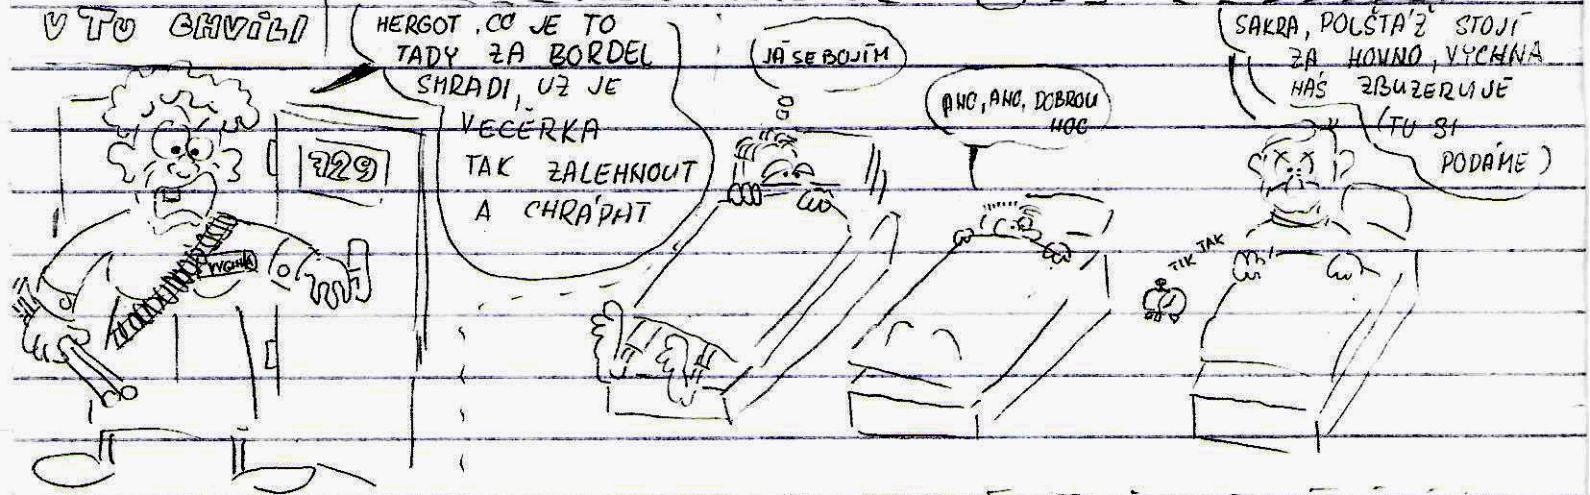 V TU CHVÍLI
HERGOT, CO JE TO
TADY ZA BORDEL
SMRADI, UZ JE
VECĚRKA
TAK ZALEHNOUT
A CHRÁPAT
729
JÁ SE BOJÍM
ANO, ANO, DOBROU
NOC
TIK TAK
SAKRA, POLŠTÁŽ STOJÍ
ZA HOVNO, VÝCHNA
NÁS ZBUZERUJE
(TU SI
PODÁME)